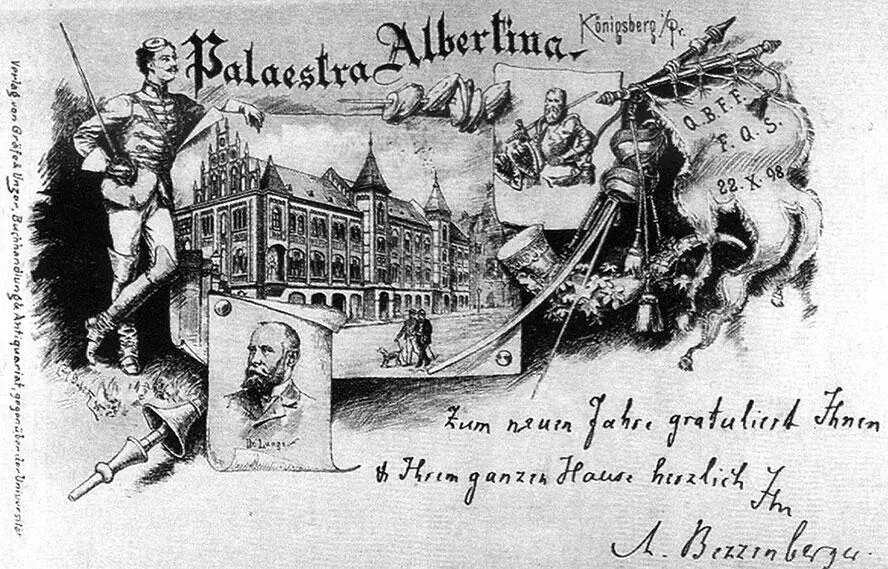 Palaestra Albertina
Königsberg i/Pr.
Q.B.F.F.
F.Q.S.
22.X.98
Verlag von Gräfe & Unzer, Buchhandlung & Antiquariat, gegenüber der Universität
Dr. Lange
Zum neuen Jahre gratuliert Ihnen
& Ihrem ganzen Hause herzlich
Ihr
A. Bezzenberger.